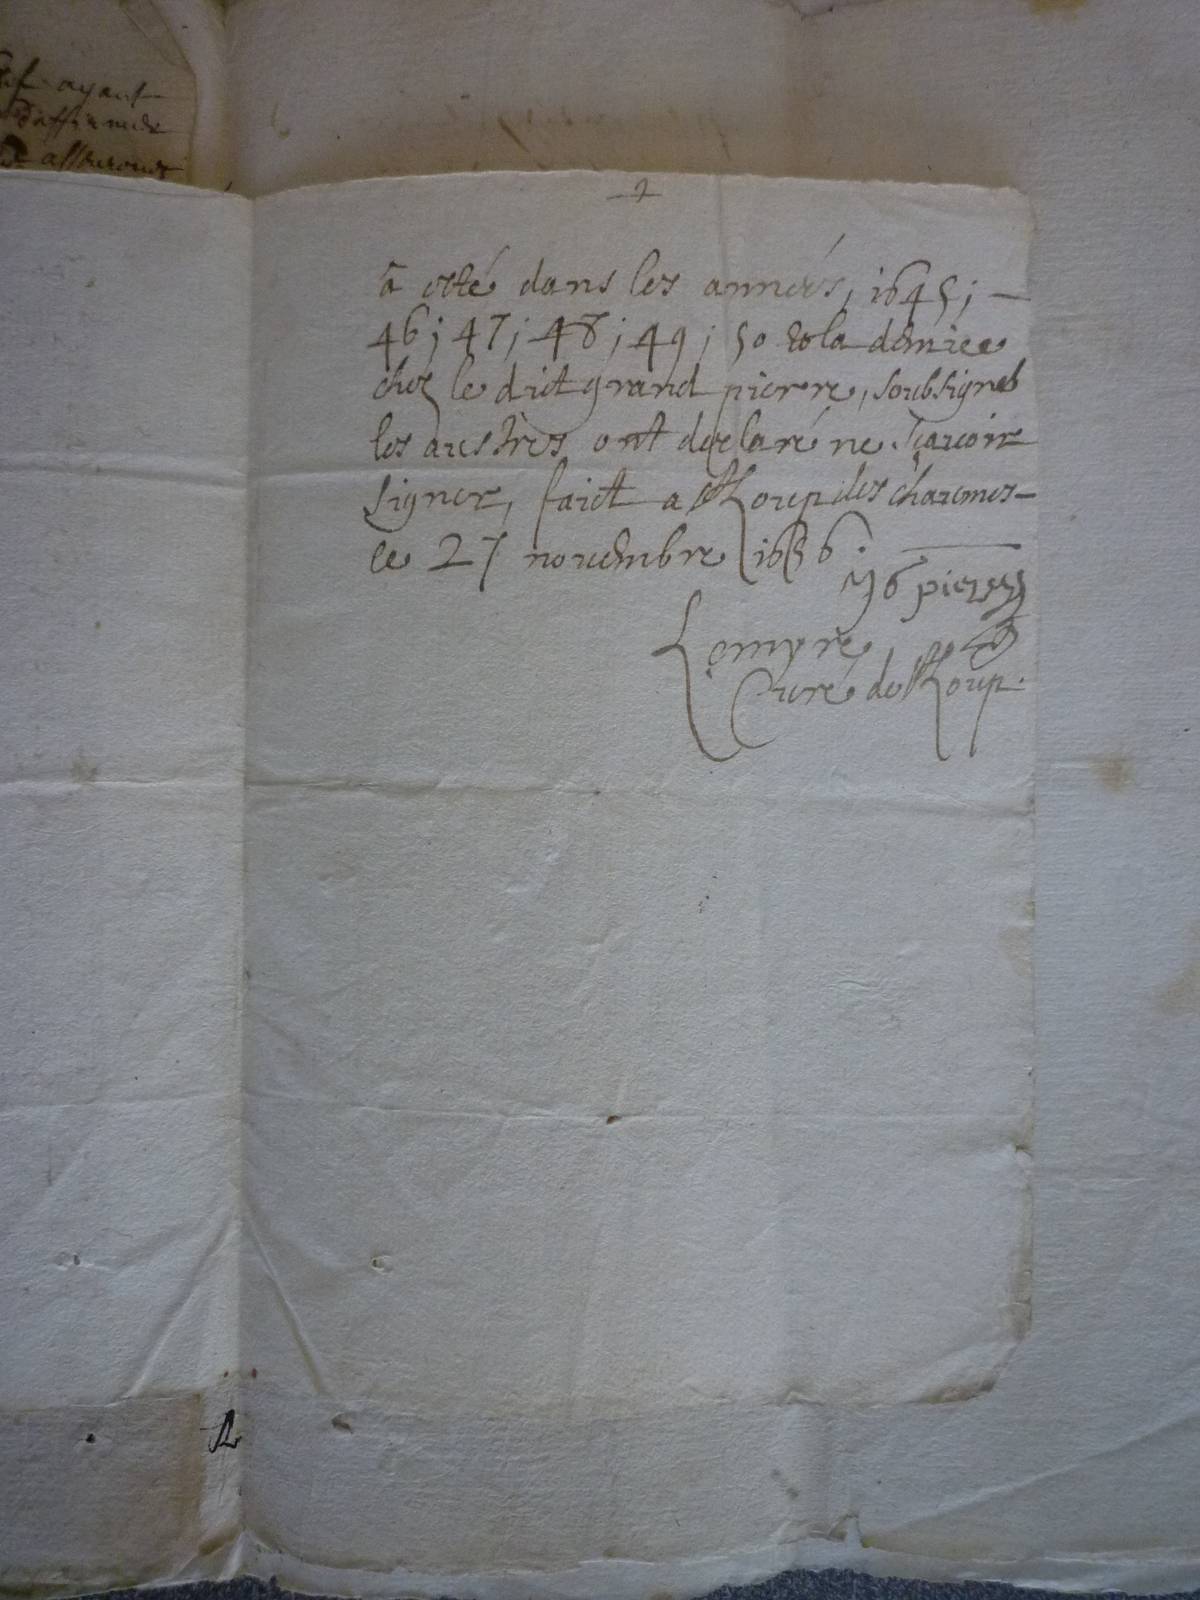 ayant
d'affirmer
2
a esté dans les années, 1645; —
46; 47; 48; 49; 50 et la demiee
chez le dict grand pierre, soubsignes
les austres ont declaré ne sçavoir
signer, faict a st Loup des chaumes —
ce 27 novembre 1656.
pierre
Lemyre
Curé de st Loup.